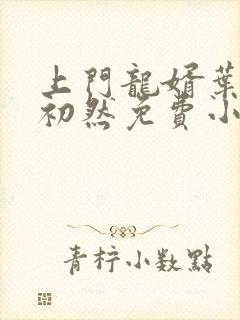 上門龍婿葉
初然免費小
青柠小数點